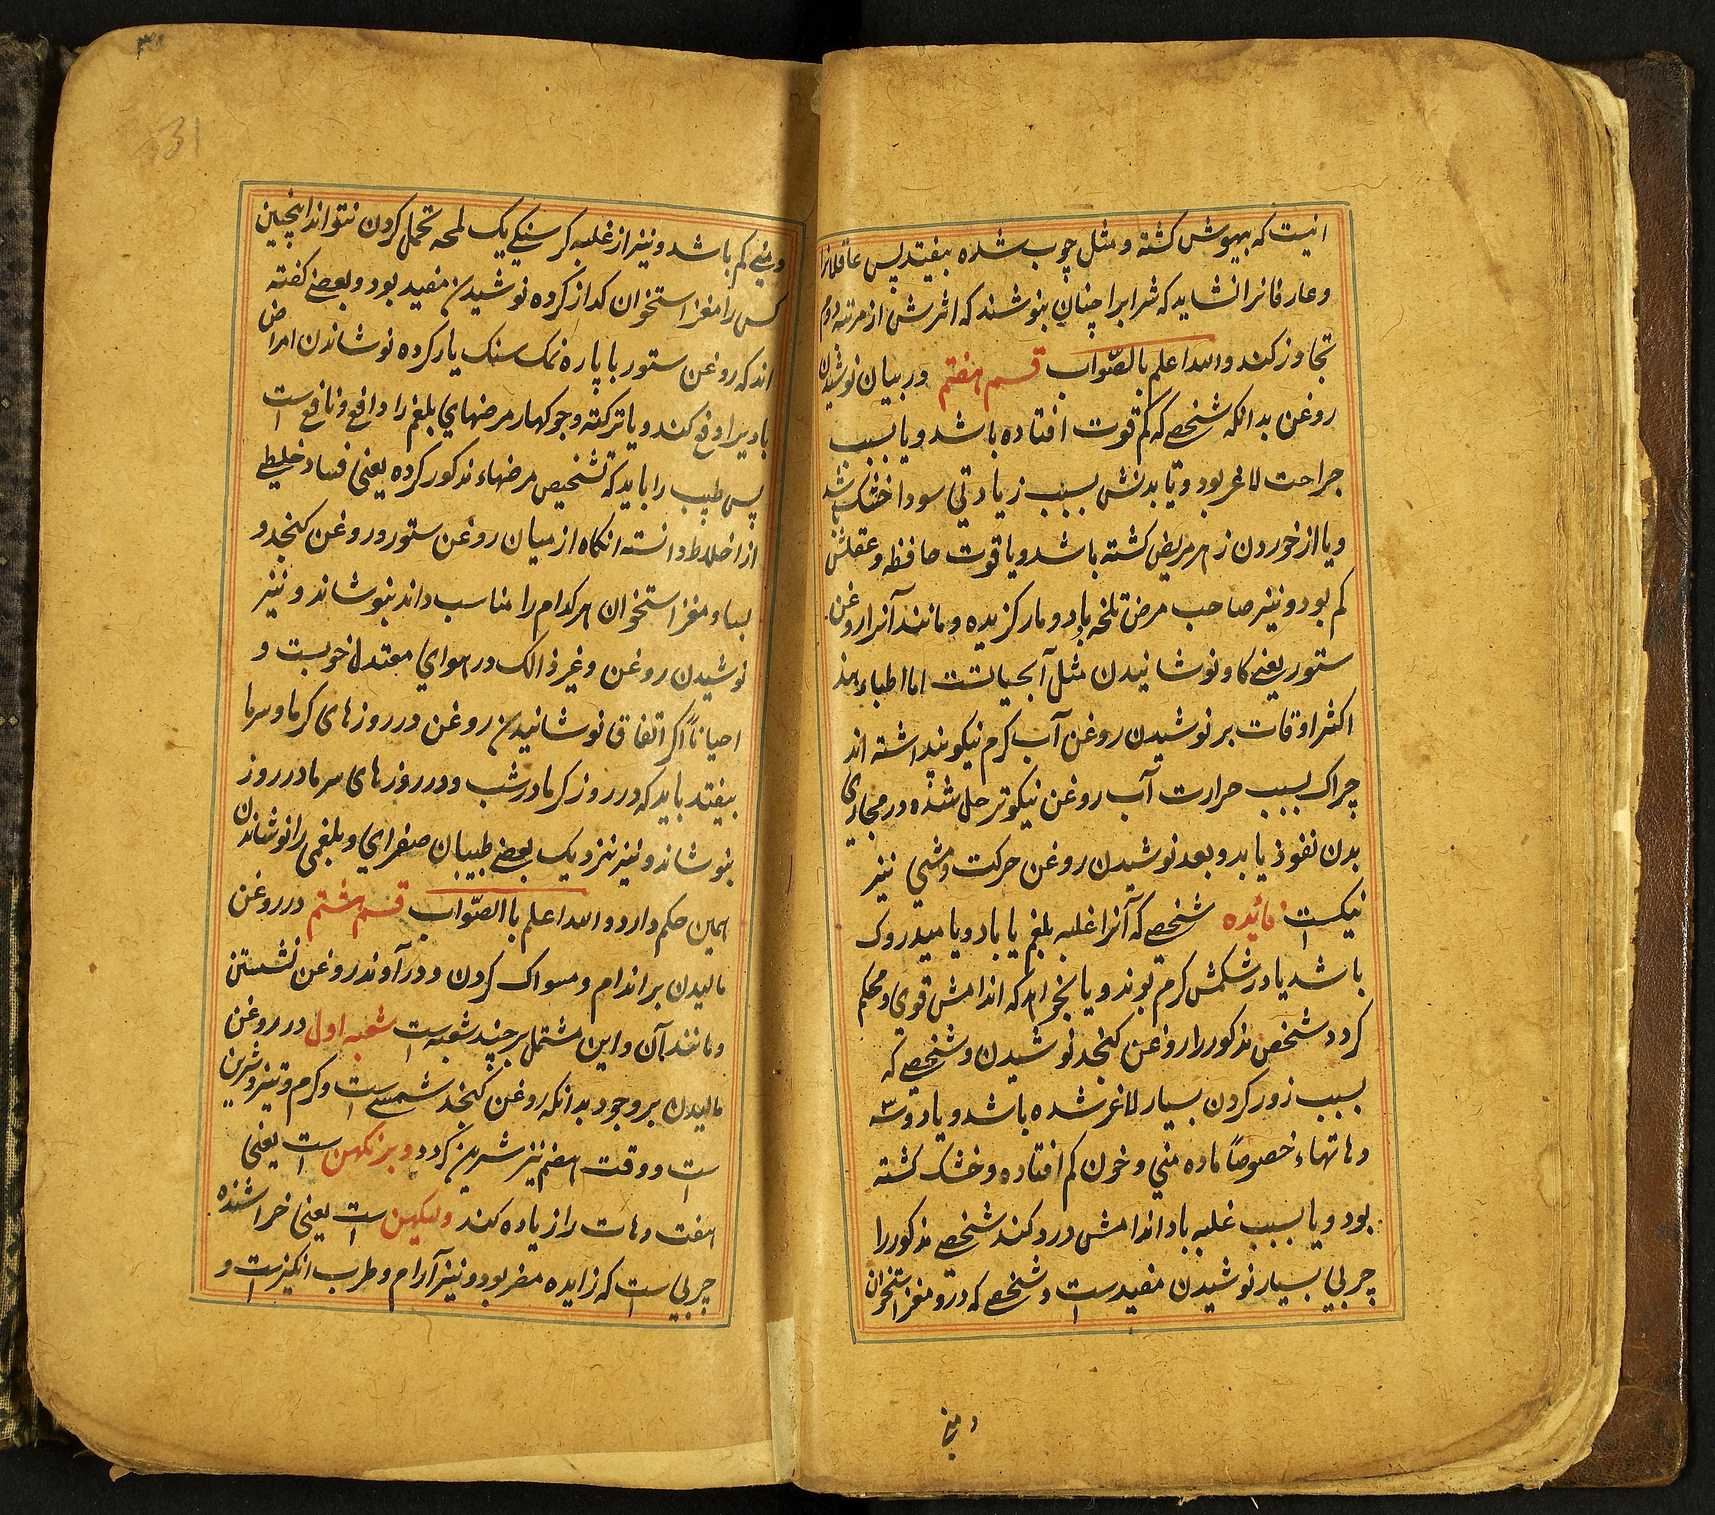 انیست که بیهوش کشته و مثل چوب شده بیفتد پس عاقلانرا
و عارفانرا نشاید که شرابرا چنان بنوشند که اثرش از مرتبه دوم
تجاوز کند والله اعلم بالصّواب قسم هفتم در بیان نوشیدن
روغن بدانکه شخصے که کم قوت افتاده باشد و یا بسبب
جراحت لاغر بود و یا بدنش بسبب زیادتی سودا خشک باشد
و یا از خوردن زهر مریض کشته باشد و یا قوت حافظه و عقلش
کم بود و نیز صاحب مرض تلخه باد و مار کزیده و مانند آنرا روغن
ستور یعنے کاو نوشانیدن مثل آبحیاتست اما اطباء هند
اکثر اوقات بر نوشیدن روغن آب کرم نیکو پنداشته اند
چراکه بسبب حرارت آب روغن نیکوتر حل شده در مجاری
بدن نفوذ یابد و بعد نوشیدن روغن حرکت و مشي نیز
نیکست فائده شخصے که آنرا غلبه بلغم یا باد و یا میدروک
باشد یا در شکمش کرم بوند و یا بخواهد که اندامش قوی و محکم
کردد شخص مذکور را روغن کنجد نوشیدن و شخصے که
بسبب زور کردن بسیار لاغر شده باشد و یا دو سه
دهاتهاء خصوصاً ماده مني و خون کم افتاده و خشک کشته
بود و یا بسبب غلبه باد اندامش درد کند شخصے مذکور را
چربي بسیار نوشیدن مفید است و شخصے که در و مغز استخوان
و مني
۳۱
31
و منے کم باشد و نیز از غلبه کرسنکے یک لمحه تحمل کردن نتواند اینچنین
کس را مغز استخوان کداز کرده نوشیدن مفید بود و بعضے کفته
اند که روغن ستور با پاره نمک سنک یار کرده نوشاندن امراض
بادیرا دفع کند و با ترکته و جوکهار مرضهای بلغم را دافع و نافع است
پس طبیب را باید که تشخیص مرضهاء مذکور کرده یعنی فساد خلیطے
از اخلاط دانسته انکاه از میان روغن ستور و روغن کنجد و
بسا و مغز استخوان هر کدام را مناسب داند بنوشاند و نیز
نوشیدن روغن و غیر ذالک در هوای معتدل خوبست و
احیاناً اکر اتفاق نوشانیدن روغن در روزهای کرما و سرما
بیفتد باید که در روز کرما در شب و در روزهای سرما در روز
بنوشاند و نیز نزدیک بعضے طبیبان صفرای و بلغمی را نوشاندن
همین حکم دارد والله اعلم باالصّواب قسم هشتم در روغن
مالیدن بر اندام و مسواک کردن و در آوند روغن نشستن
و مانند آن و این مشتمل بر چند شعبه است شعبه اول در روغن
مالیدن بر وجود بدانکه روغن کنجد شمسے است و کرم و تیز و شرین
است و وقت هضم نیز شرین کردد و برنکهن است یعنی
هفت دهات را زیاده کند و لیکهن است یعنی خراشنده
چربی است که زایده مضر بود و نیز آرام و طرب انکیز است و